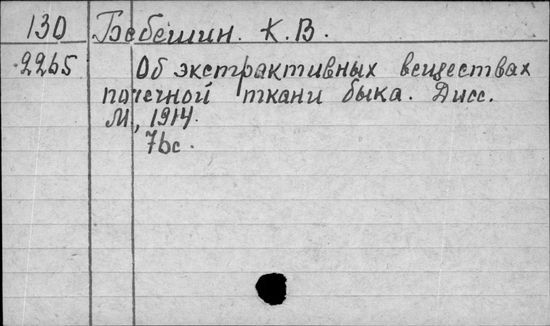 130 Бебешин. К.В.
2265 Об экстрактивных веществах
почечной ткани быка. Дисс.
М, 1914.
76с.